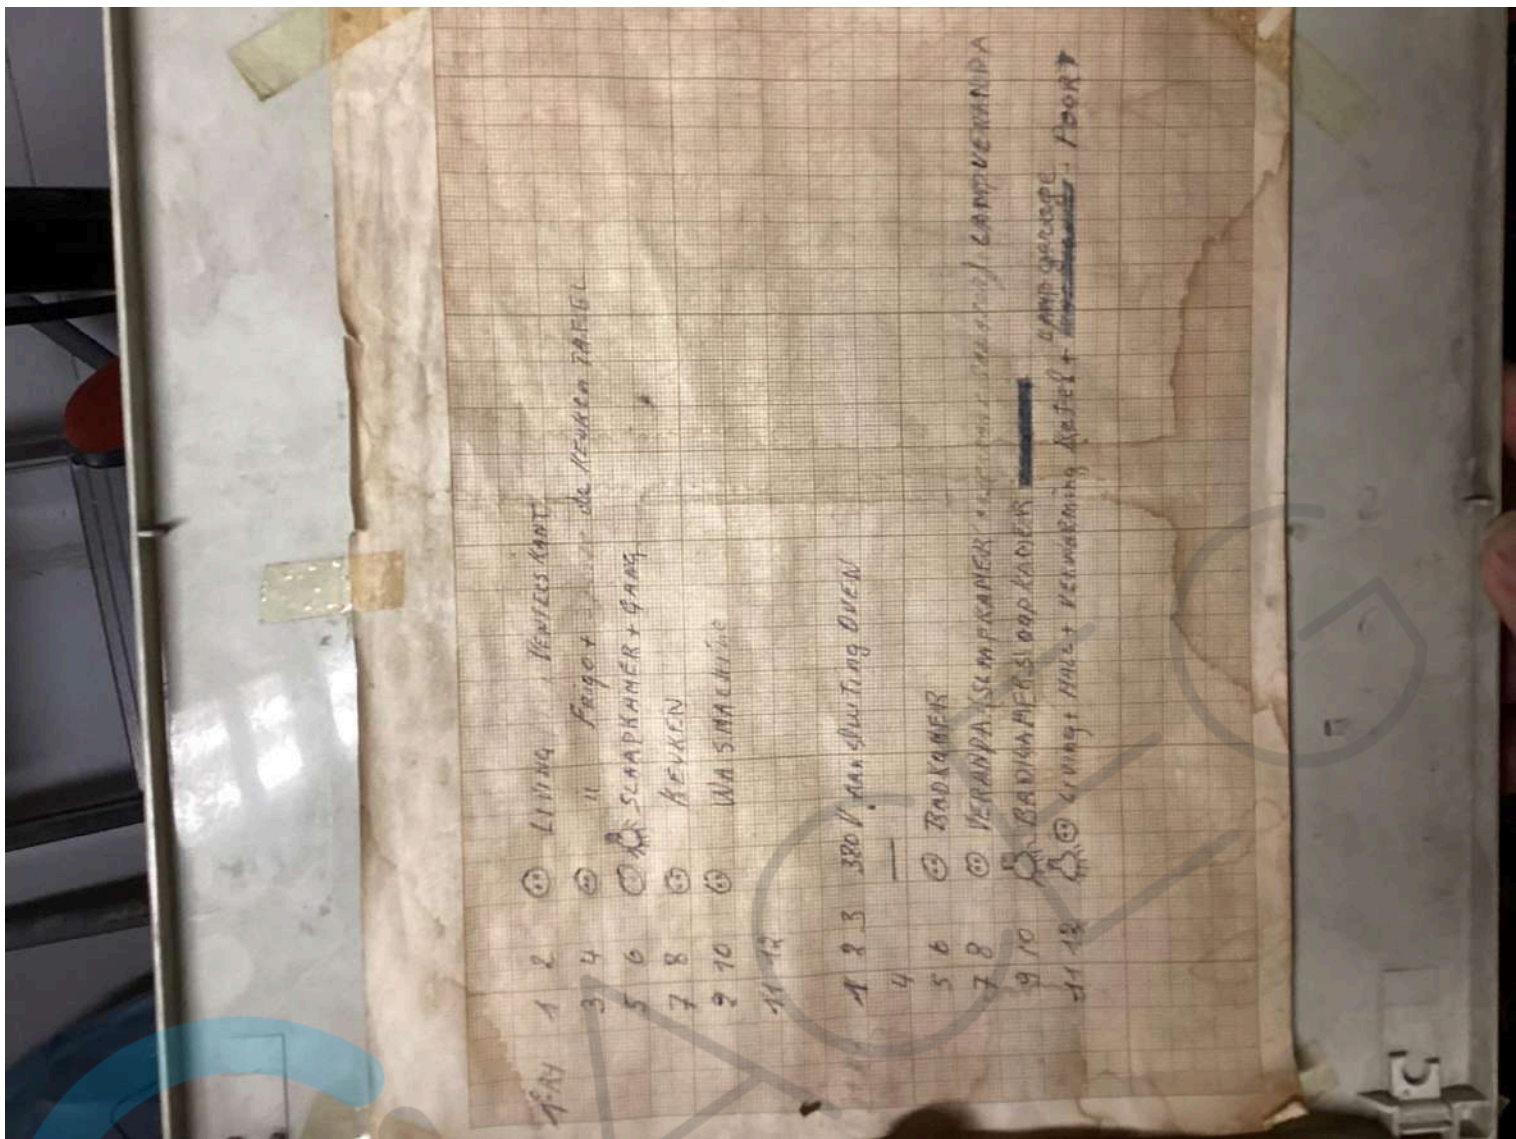 1e RY 1 2 LIVING VENTLISKANT
3 4 " FRIGO + de KEUKEN TAFEL
5 6 SLAAPKAMER + GANG
7 8 KEUKEN
9 10 WASMACHINE
11 12
1 2 3 380 V AANSLUITING OVEN
4 —
5 6 BADKAMER
7 8 VERANDA, SLAAPKAMER LAMP VERANDA
9 10 BADKAMER SLOOPKAMER
LAMP garage
11 12 LIVING + HALL + VERWARMING Ketel + POORT
ACEG